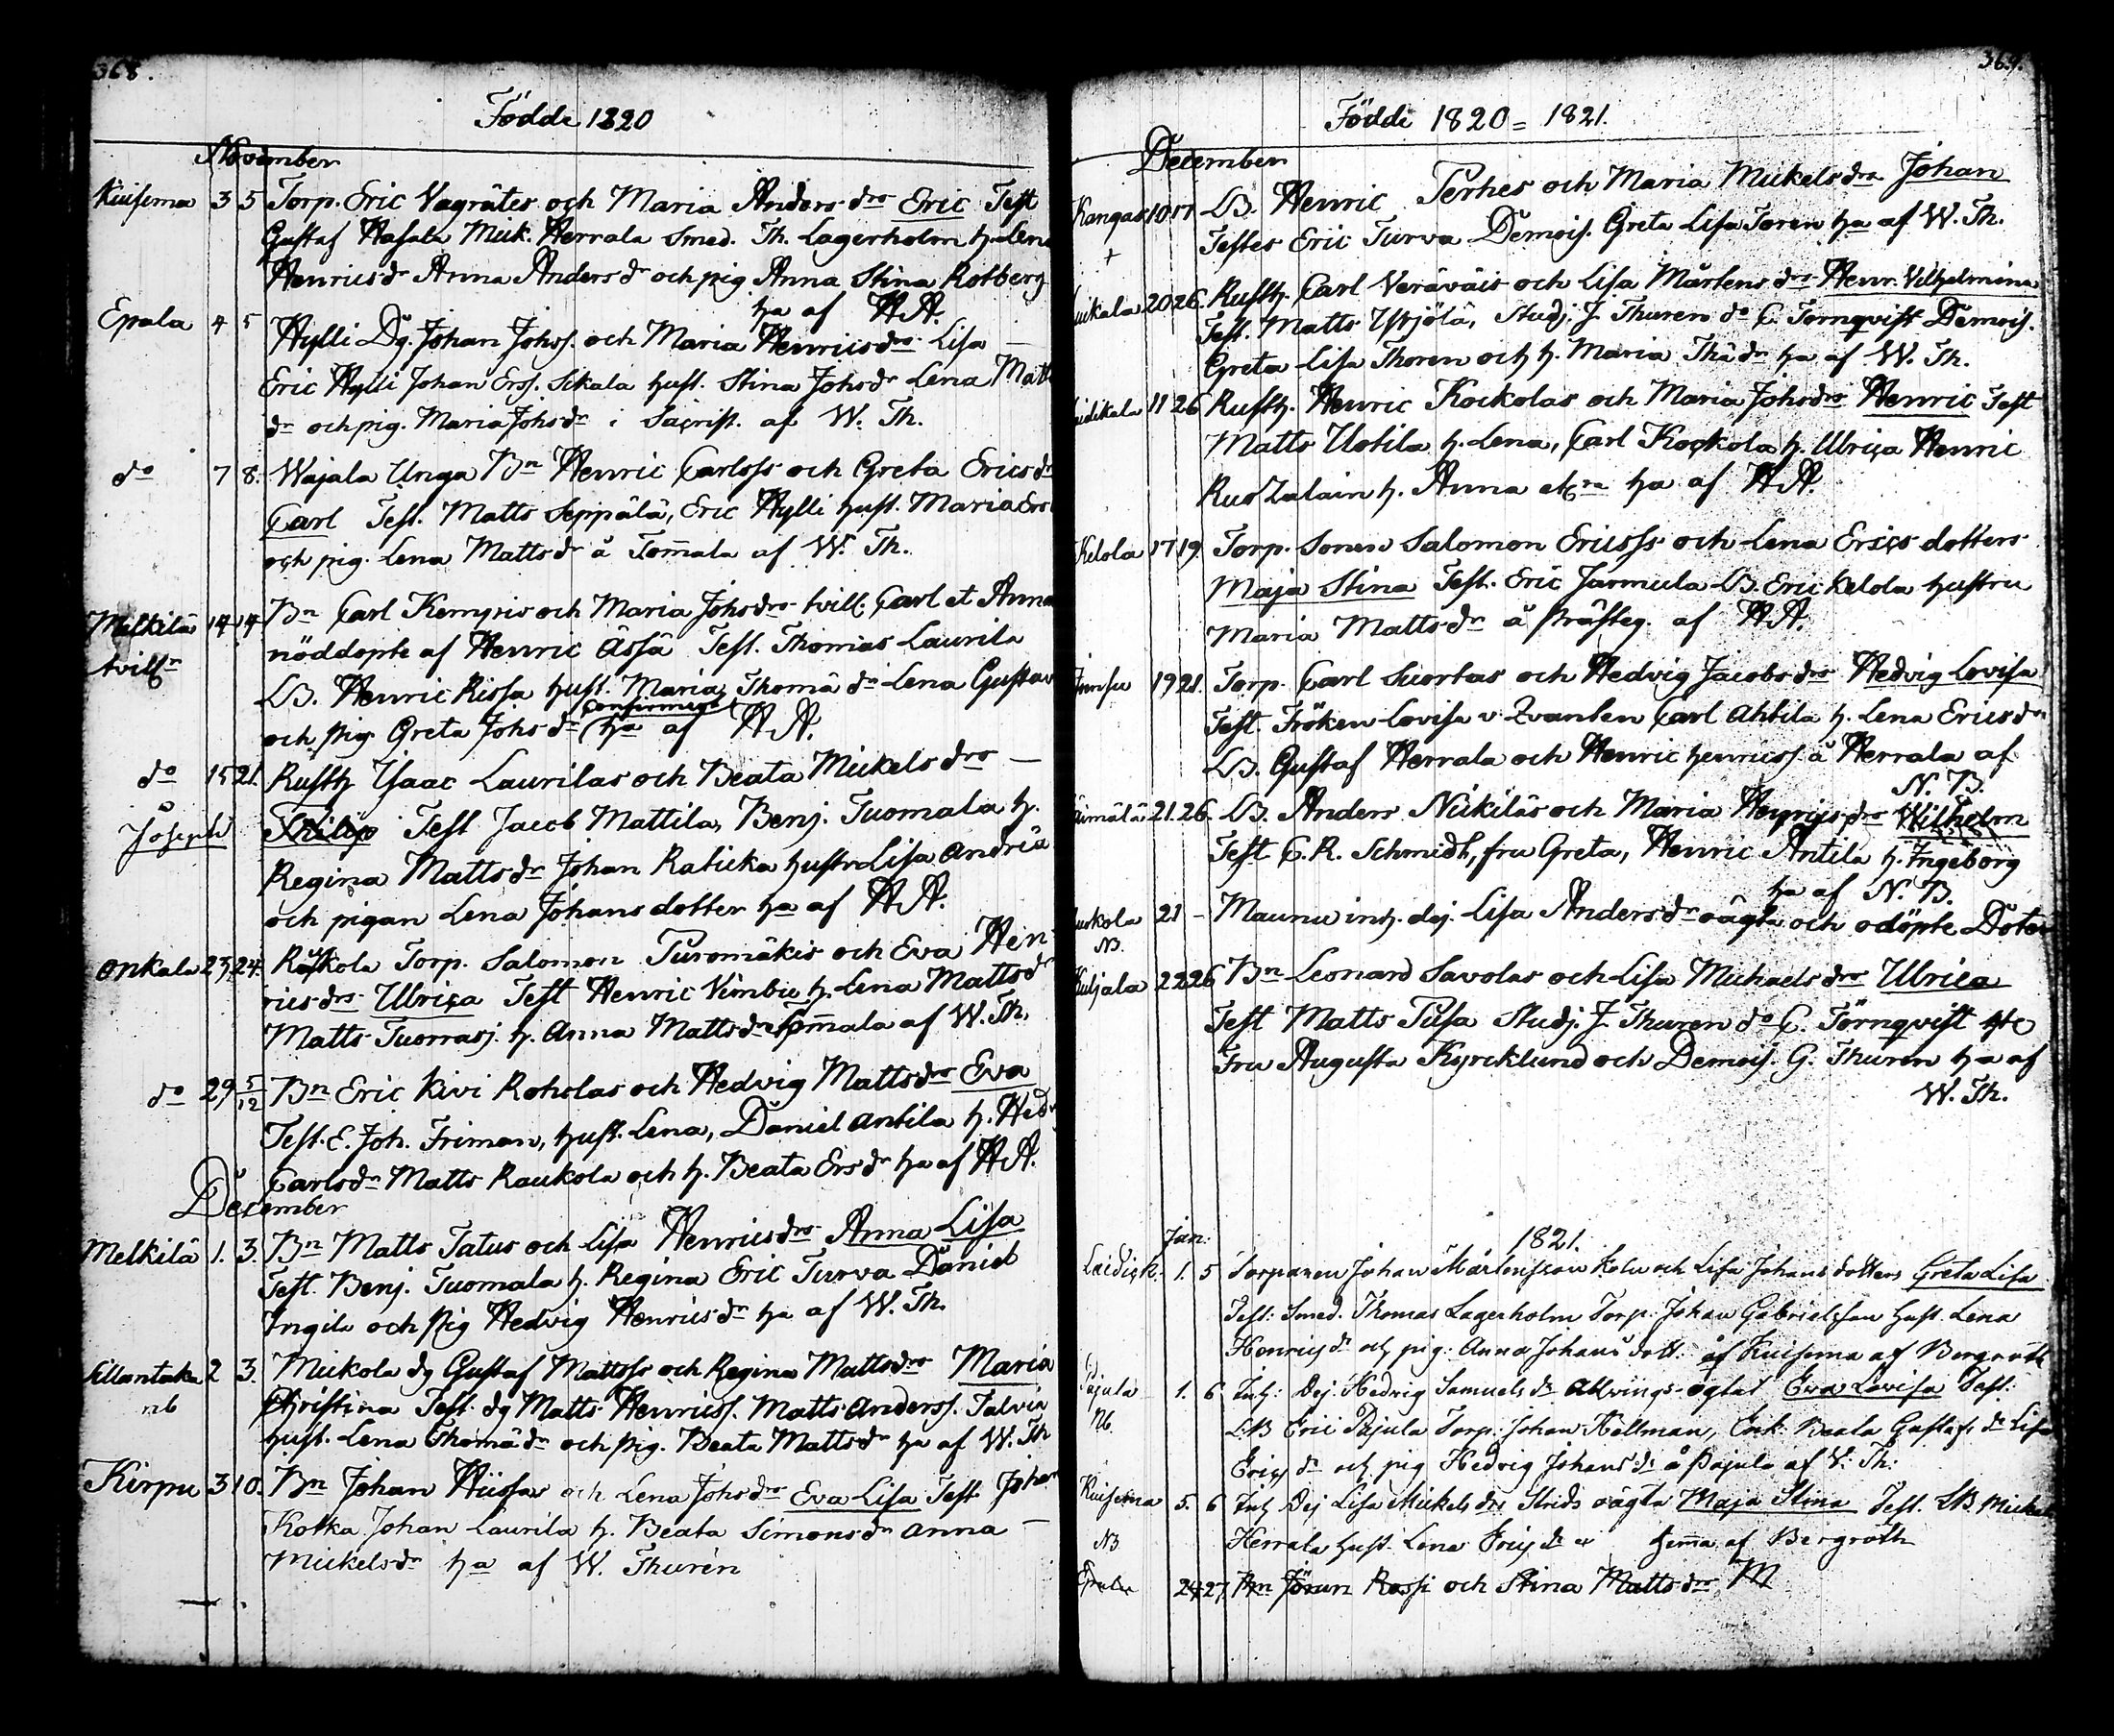 368.
Födde 1820
November
Kuisema 3 5 Torp. Eric Vagråtes och Maria Anders drs Eric Test
Gustaf Hasala Mick. Herrala Smed. Th. Lagerholm h. Lena
Henricsdr Anna Andersdr och pig Anna Stina Rotberg
ha af AA.
Epala 4 5 Hylli Dg. Johan Johss. och Maria Henricsdrs Lisa —
Eric Hylli Johan Erss. Sikala hust. Stina Johsdr Lena Matts
dr och pig. Maria Johsdr i Sacrist. af W. Th.
do 7 8. Wajala Unga Bn Henric Carlss och Greta Ericsdr
Carl Test. Matts Seppälä, Eric Hylli hust. Maria Ers
och pig. Lena Mattsdr å Tom̄ala af W. Th.
Melkilä 14 14 Bn Carl Kempis och Maria Johsdrs tvill. Carl et Anna
tvillr nöddopte af Henric Ässä Test. Thomas Laurila
LB. Henric Rissa hust. Maria Thomä dr Lena Gustav
Confirmeqt
och pig Greta Johsdr ha af AA.
do 15 21. Rusth Isaac Laurilas och Beata Mickelsdrs —
Joseph Philip Test Jacob Mattila, Benj. Tuomala h.
Regina Mattsdr Johan Raticka hustr Lisa Andreä
och pigan Lena Johansdotter ha af AA.
Onkala 23. 24. Råskola Torp. Salomon Turomäkis och Eva Hen-
ricsdrs Ulrica Test Henric Vimbu h. Lena Mattsdr
Matts Tuomasj. h. Anna Mattsdr Tom̄ala af W. Th.
do 29 5/12 Bn Eric Kivi Roholas och Hedvig Mattsdrs Eva
Test. E. Joh. Friman, hust. Lena, Daniel Antila h. Hedv
Carlsdr Matts Raukola och h. Beata Ersdr ha af AA.
December
Melkilä 1. 3. Bn Matts Tatus och Lisa Henricsdrs Anna Lisa
Test. Benj. Tuomala h. Regina Eric Turva Daniel
Ingila och pig Hedvig Henricsdr ha af W. Th.
Sillantaka 2 3. Mickola dg Gustaf Mattss och Regina Mattsdrs Maria
nb Christina Test. dg Matts Henricss. Matts Anderss. Talvia
hust. Lena Thomädr och pig. Beata Mattsdr ha af W. Th
Kirpu 3 10. Bn Johan Hiissas och Lena Johsdrs Eva Lisa Test Johan
Kotka Johan Laurila h. Beata Simonsdr Anna —
Mickelsdr ha af W. Thurén
369.
Födde 1820 = 1821.
December
Kangas 10 17 LB. Henric Perhes och Maria Mickelsdrs Johan
+ Testes Eric Turva Demois. Greta Lisa Toren ha af W. Th.
uikala 20 26. Rusth. Carl Veräväis och Lisa Mårtensdrs Henr. Vilhelmina
Test. Matts Yttjölä, Studj. J. Thuren do C. Tornqvist Demois.
Greta Lisa Thoren och h. Maria Thådr ha af W. Th.
aidikala 11 26 Rusth. Henric Kockolas och Maria Johsdrs Henric Test
Matts Uotila h. Lena, Carl Kockola h. Ulrica Henric
Ruozalain h. Anna ha af AA.
Kelola 17 19. Torp. Sonen Salomon Ericss och Lena Ericsdotters
Maja Stina Test. Eric Jarmula LB. Eric Kelola hustru
Maria Mattsdr å Prästeg. af AA.
19 21. Torp. Carl Suortas och Hedvig Jacobsdrs Hedvig Lovisa
Test. Fröken Lovisa v. Zvanten Carl Ahtila h. Lena Ericsdr
LB. Gustaf Herrala och Henric Henricss. å Herrala af
N. B.
21. 26. LB. Anders Nickiläs och Maria Henricsdrs Wilhelm
Test C. R. Schmidt, fru Greta, Henric Antila h. Ingeborg
ha af N. B.
uokola 21 – Maunu inh. dej. Lisa Andersdr oägta och odöpte Doter
NB.
Huljala 22 26 Bn Leonard Savolas och Lisa Michaelsdrs Ulrica
Test Matts Pusa Studj. J. Thuren do C. Törnqvist
Fru Augusta Kyrcklund och Demois. G. Thuren ha af
W. Th.
1821.
Jan:
Laidick. 1. 5 Torparen Johan Mårtensson Kolu och Lisa Johans dotters Greta Lisa
Test: Smed. Thomas Lagerholm Torp. Johan Gabrielsson hust. Lena
Henricsdr och pig: Anna Johans dott: af Kuisema af Bergroth
Pajula 1. 6 Inh: Dej Hedvig Samuelsdr Allvings oägta Eva Lovisa Test:
Nb. LB Eric Pajula Torp: Johan Hällman, Enk: Beata Gustafsdr Lisa
Ericsdr och pig Hedvig Johansdr å Pajula af V: Th:
Kuisema 5. 6 Inh Dej Lisa Mickelsdrs Strids oägta Maja Stina Test. LB. Mickel
NB Herrala hust. Lena Ericsdr hem̄a af Bergroth
Epala 24 27. Bn Jöran Rossi och Stina Mattsdrs M